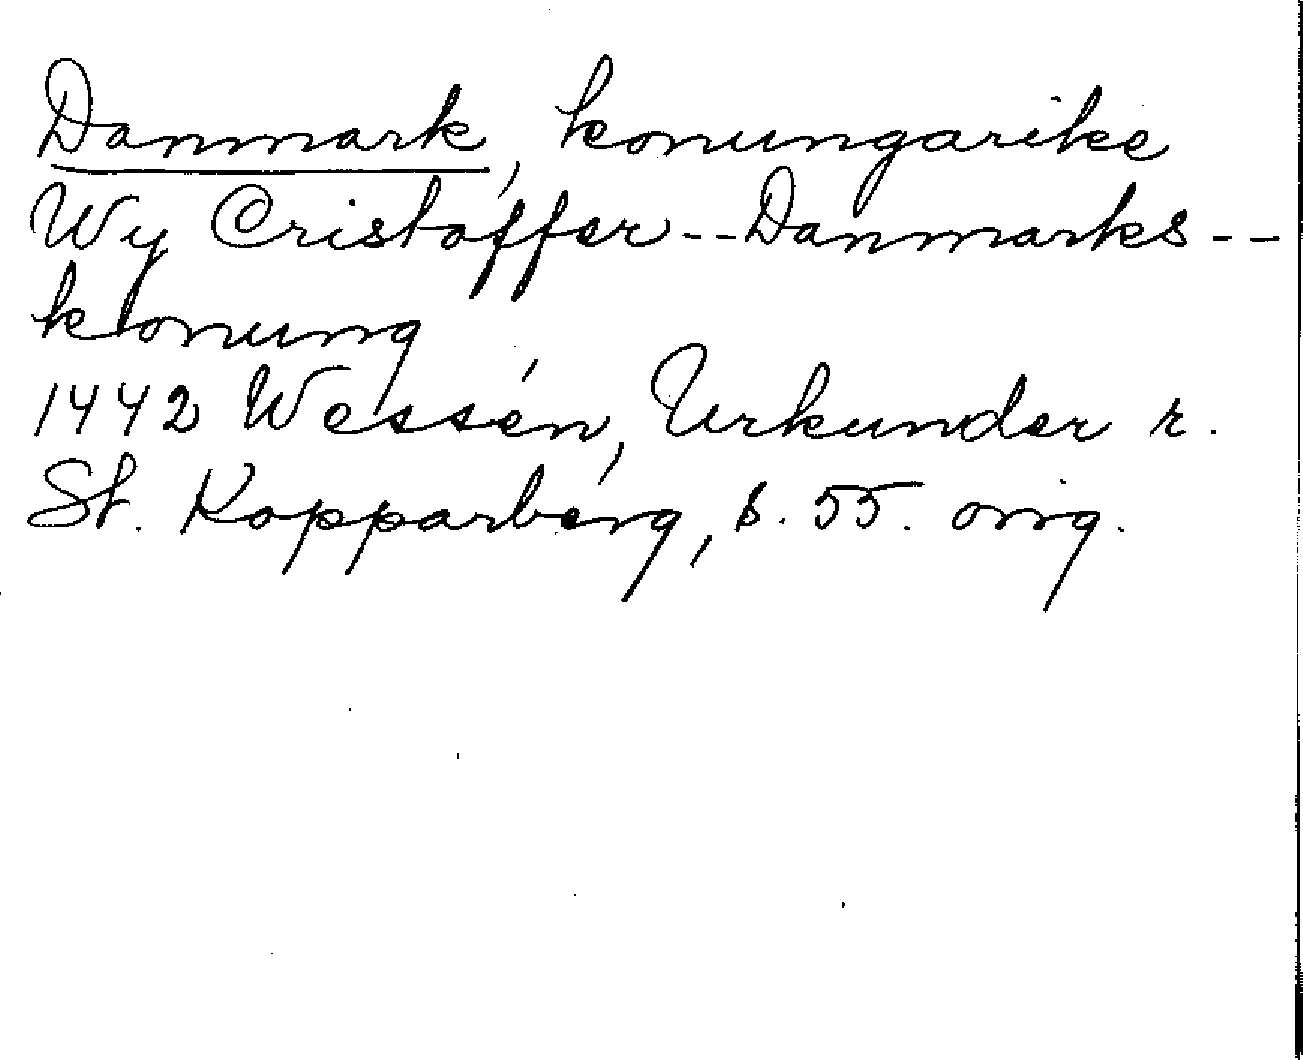 Danmark, konungarike
Wy Cristoffer -- Danmarks --
konung
1442 Wessén, Urkunder r.
St. Kopparberg, s. 55. orig.